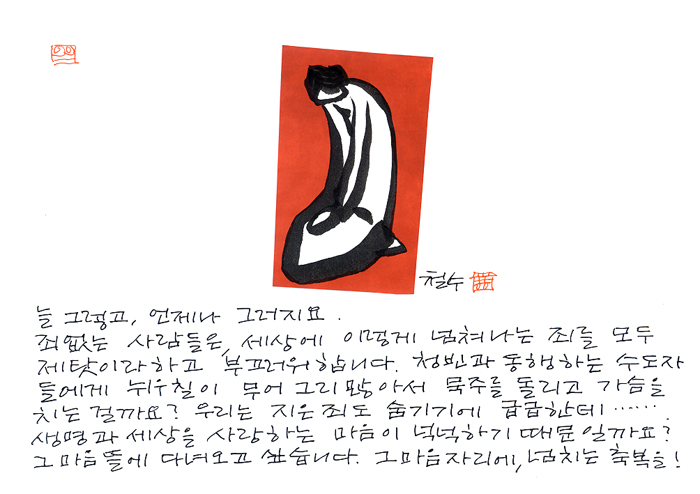 철수
늘 그렇고, 언제나 그러지요.
죄없는 사람들은, 세상에 이렇게 넘쳐나는 죄를 모두
제탓이라하고 부끄러워합니다. 청빈과 동행하는 수도자
들에게 뉘우칠이 무어 그리많아서 묵주를 돌리고 가슴을
치는 걸까요? 우리는 지은죄도 숨기기에 급급한데……
생명과 세상을 사랑하는 마음이 넉넉하기 때문일까요?
그마음뜰에 다녀오고 싶습니다. 그마음자리에, 넘치는 축복을!